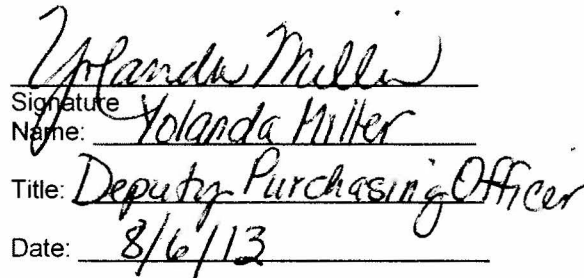 Yolanda Miller
Signature
Name: Yolanda Miller
Title: Deputy Purchasing Officer
Date: 8/6/13